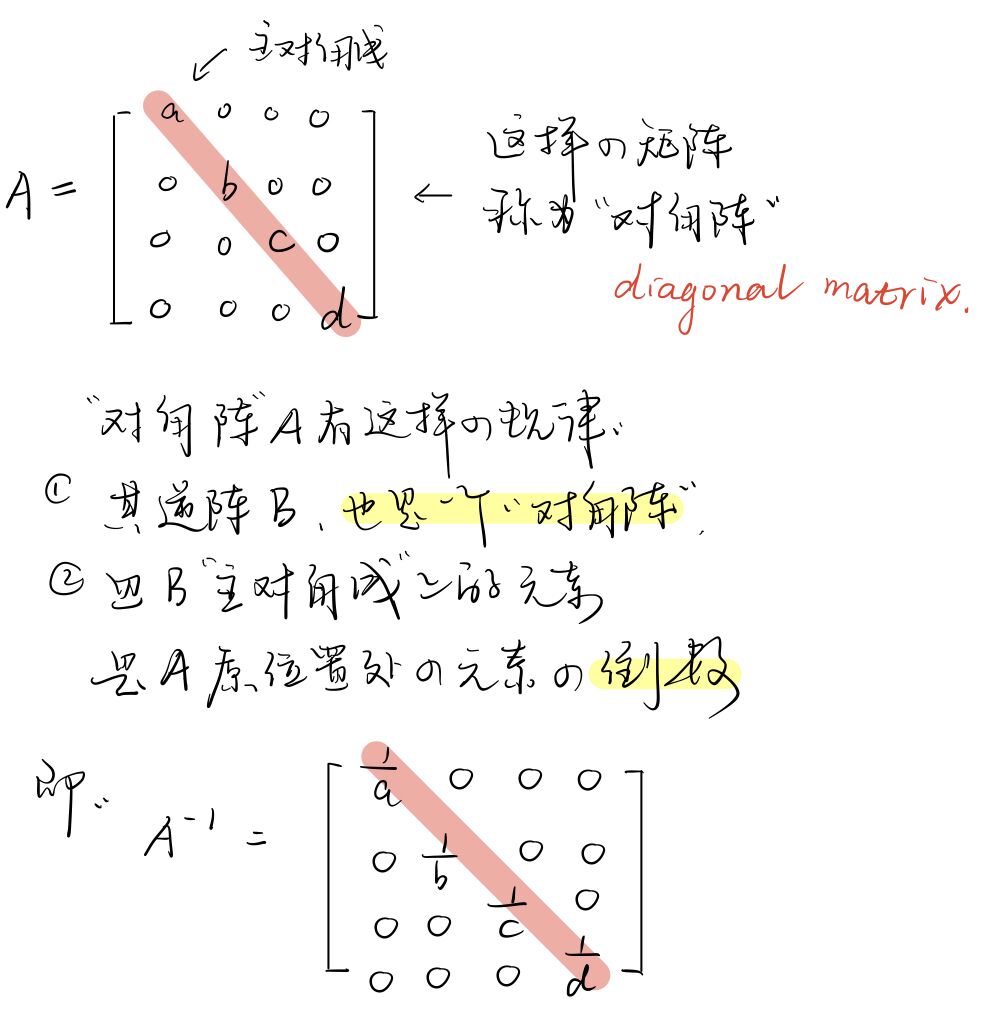 主对角线
A = [ a 0 0 0
0 b 0 0
0 0 c 0
0 0 0 d ]
← 这样の矩阵
称为"对角阵"
diagonal matrix.
"对角阵"A有这样の规律:
① 其逆阵B, 也是一个"对角阵",
② 且B"主对角线"上的元素
是A原位置处の元素の倒数
即: A⁻¹ = [ 1/a 0 0 0
0 1/b 0 0
0 0 1/c 0
0 0 0 1/d ]